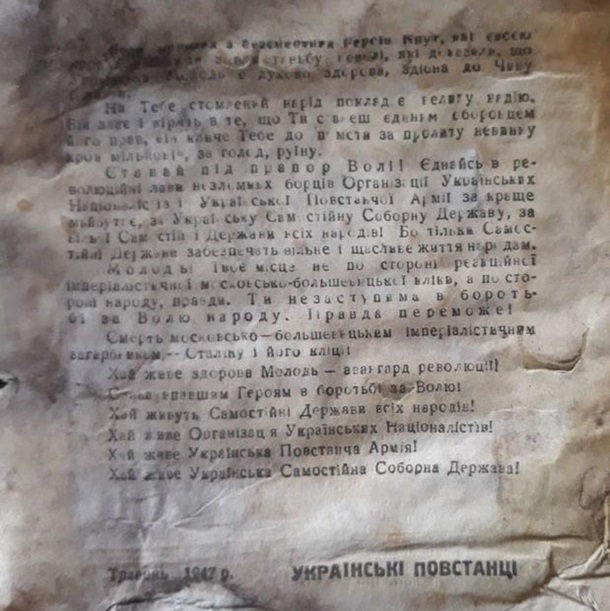 з безсмертних Героїв Крут, які своєю
які доказали, що
духово здорова, здібна до Чину
На Тебе стомлений нарід покладає велику надію.
Він знає і вірить в те, що Ти єдиним оборонцем
його прав, він кличе Тебе до помсти за пролиту невинну
кров мільйонів, за голод, руїну.
Ставай під прапор Волі! Єднайсь в ре-
волюційні лави незломних борців Організації Українських
Націоналістів і Української Повстанчої Армії за краще
майбутнє, за Українську Самостійну Соборну Державу, за
Вільні Самостійні Держави всіх народів! Бо тільки Самос-
тійні Держави забезпечать вільне і щасливе життя народам.
Молоды Твоє місце не по стороні реакційної
імперіялістичної московсько-большевицької кліки, а по сто-
роні народу, правди. Ти незаступима в бороть-
бі за Волю народу. Правда переможе!
Смерть московсько-большевицьким імперіялістичним
загарбникам — Сталіну і його кліці!
Хай живе здорова Молодь — авангард революції!
Слава впавшим Героям в боротьбі за Волю!
Хай живуть Самостійні Держави всіх народів!
Хай живе Організація Українських Націоналістів!
Хай живе Українська Повстанча Армія!
Хай живе Українська Самостійна Соборна Держава!
Травень 1947 р. УКРАЇНСЬКІ ПОВСТАНЦІ